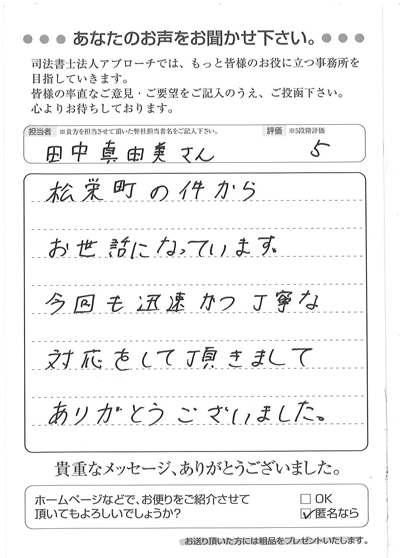 ●●● あなたのお声をお聞かせ下さい。 ●●●
司法書士法人アプローチでは、もっと皆様のお役に立つ事務所を
目指していきます。
皆様の率直なご意見・ご要望をご記入のうえ、ご投函下さい。
心よりお待ちしております。
担当者 ※貴方を担当させて頂いた弊社担当者名をご記入下さい。 評価 ※5段階評価
田中真由美さん 5
松栄町の件から
お世話になっています。
今回も迅速かつ丁寧な
対応をして頂きまして
ありがとうございました。
貴重なメッセージ、ありがとうございました。
ホームページなどで、お便りをご紹介させて
頂いてもよろしいでしょうか?
□ OK
☑ 匿名なら
お送り頂いた方には粗品をプレゼントいたします。